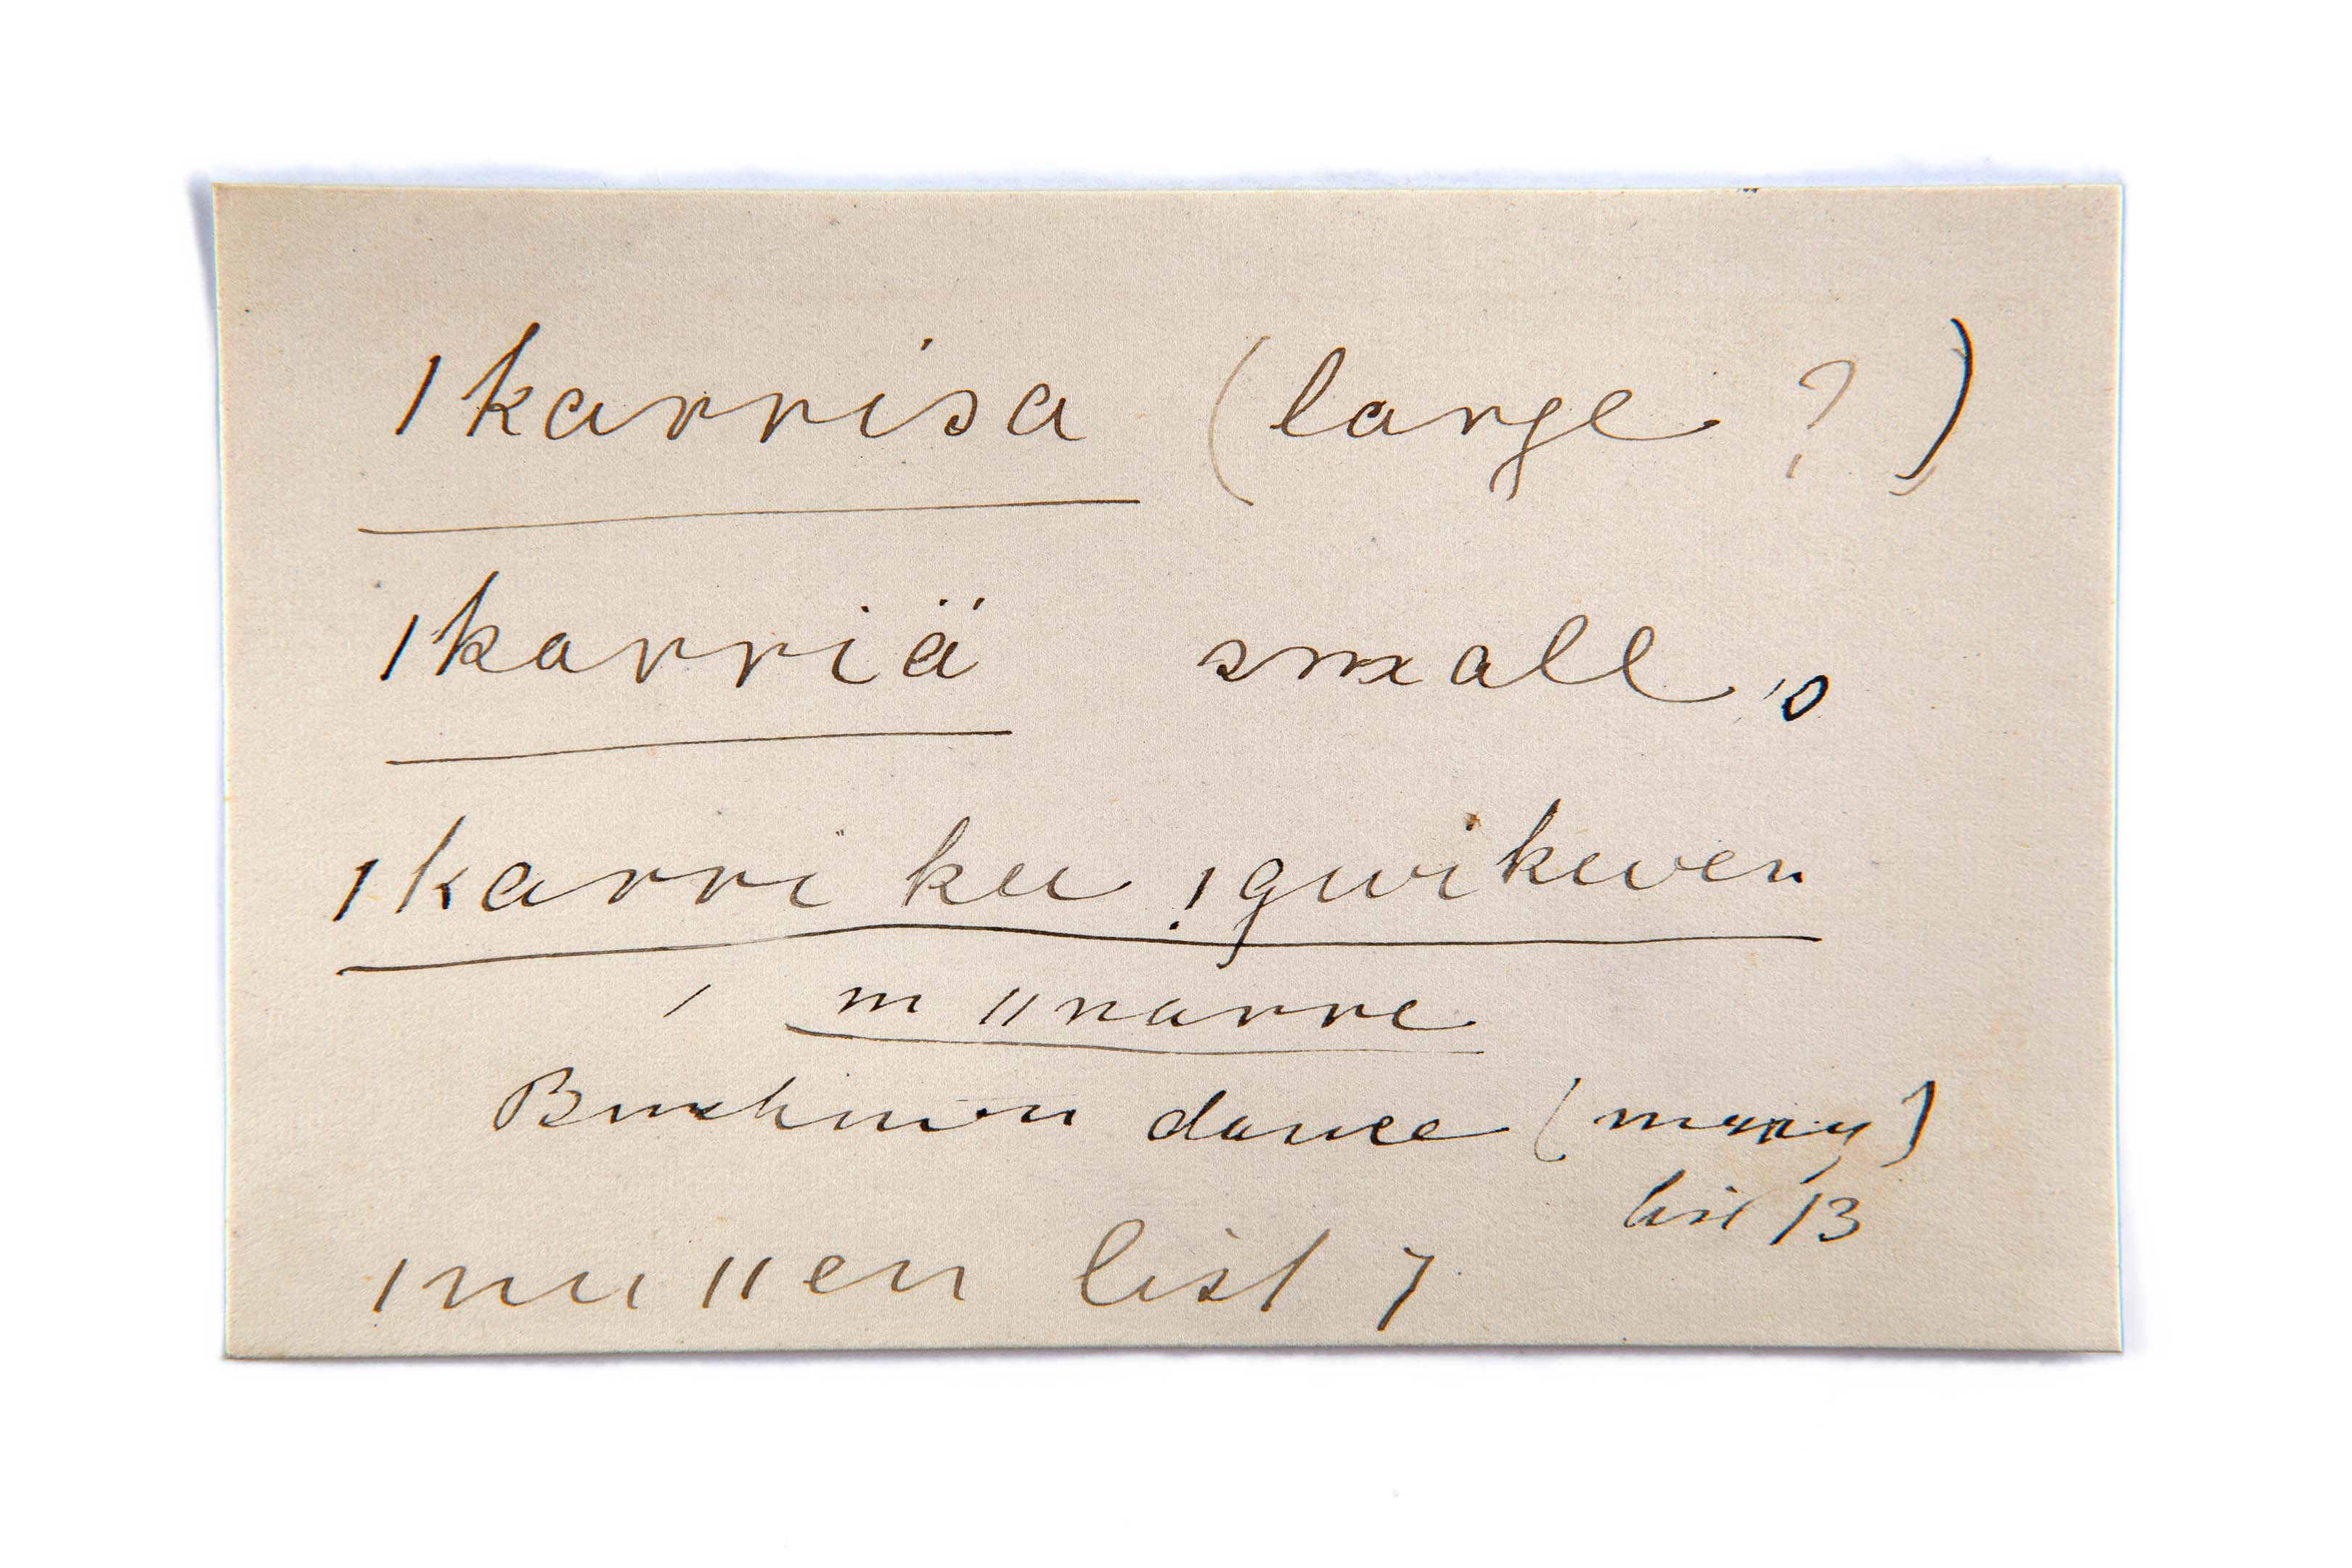 ǀkarrisa (large ?)
ǀkarriä small,
ǀkarri ku ǃgwikwen
m ǁnarre
Bushman dance (many)
list 13
ǀnuǁen list 7